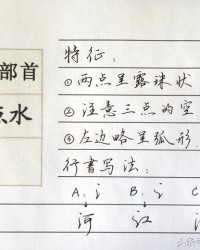 部首
点水
特征：
①两点呈露珠状
②注意三点的空
③左边略呈弧形
行书写法：
A：氵 B：氵 C
河 江